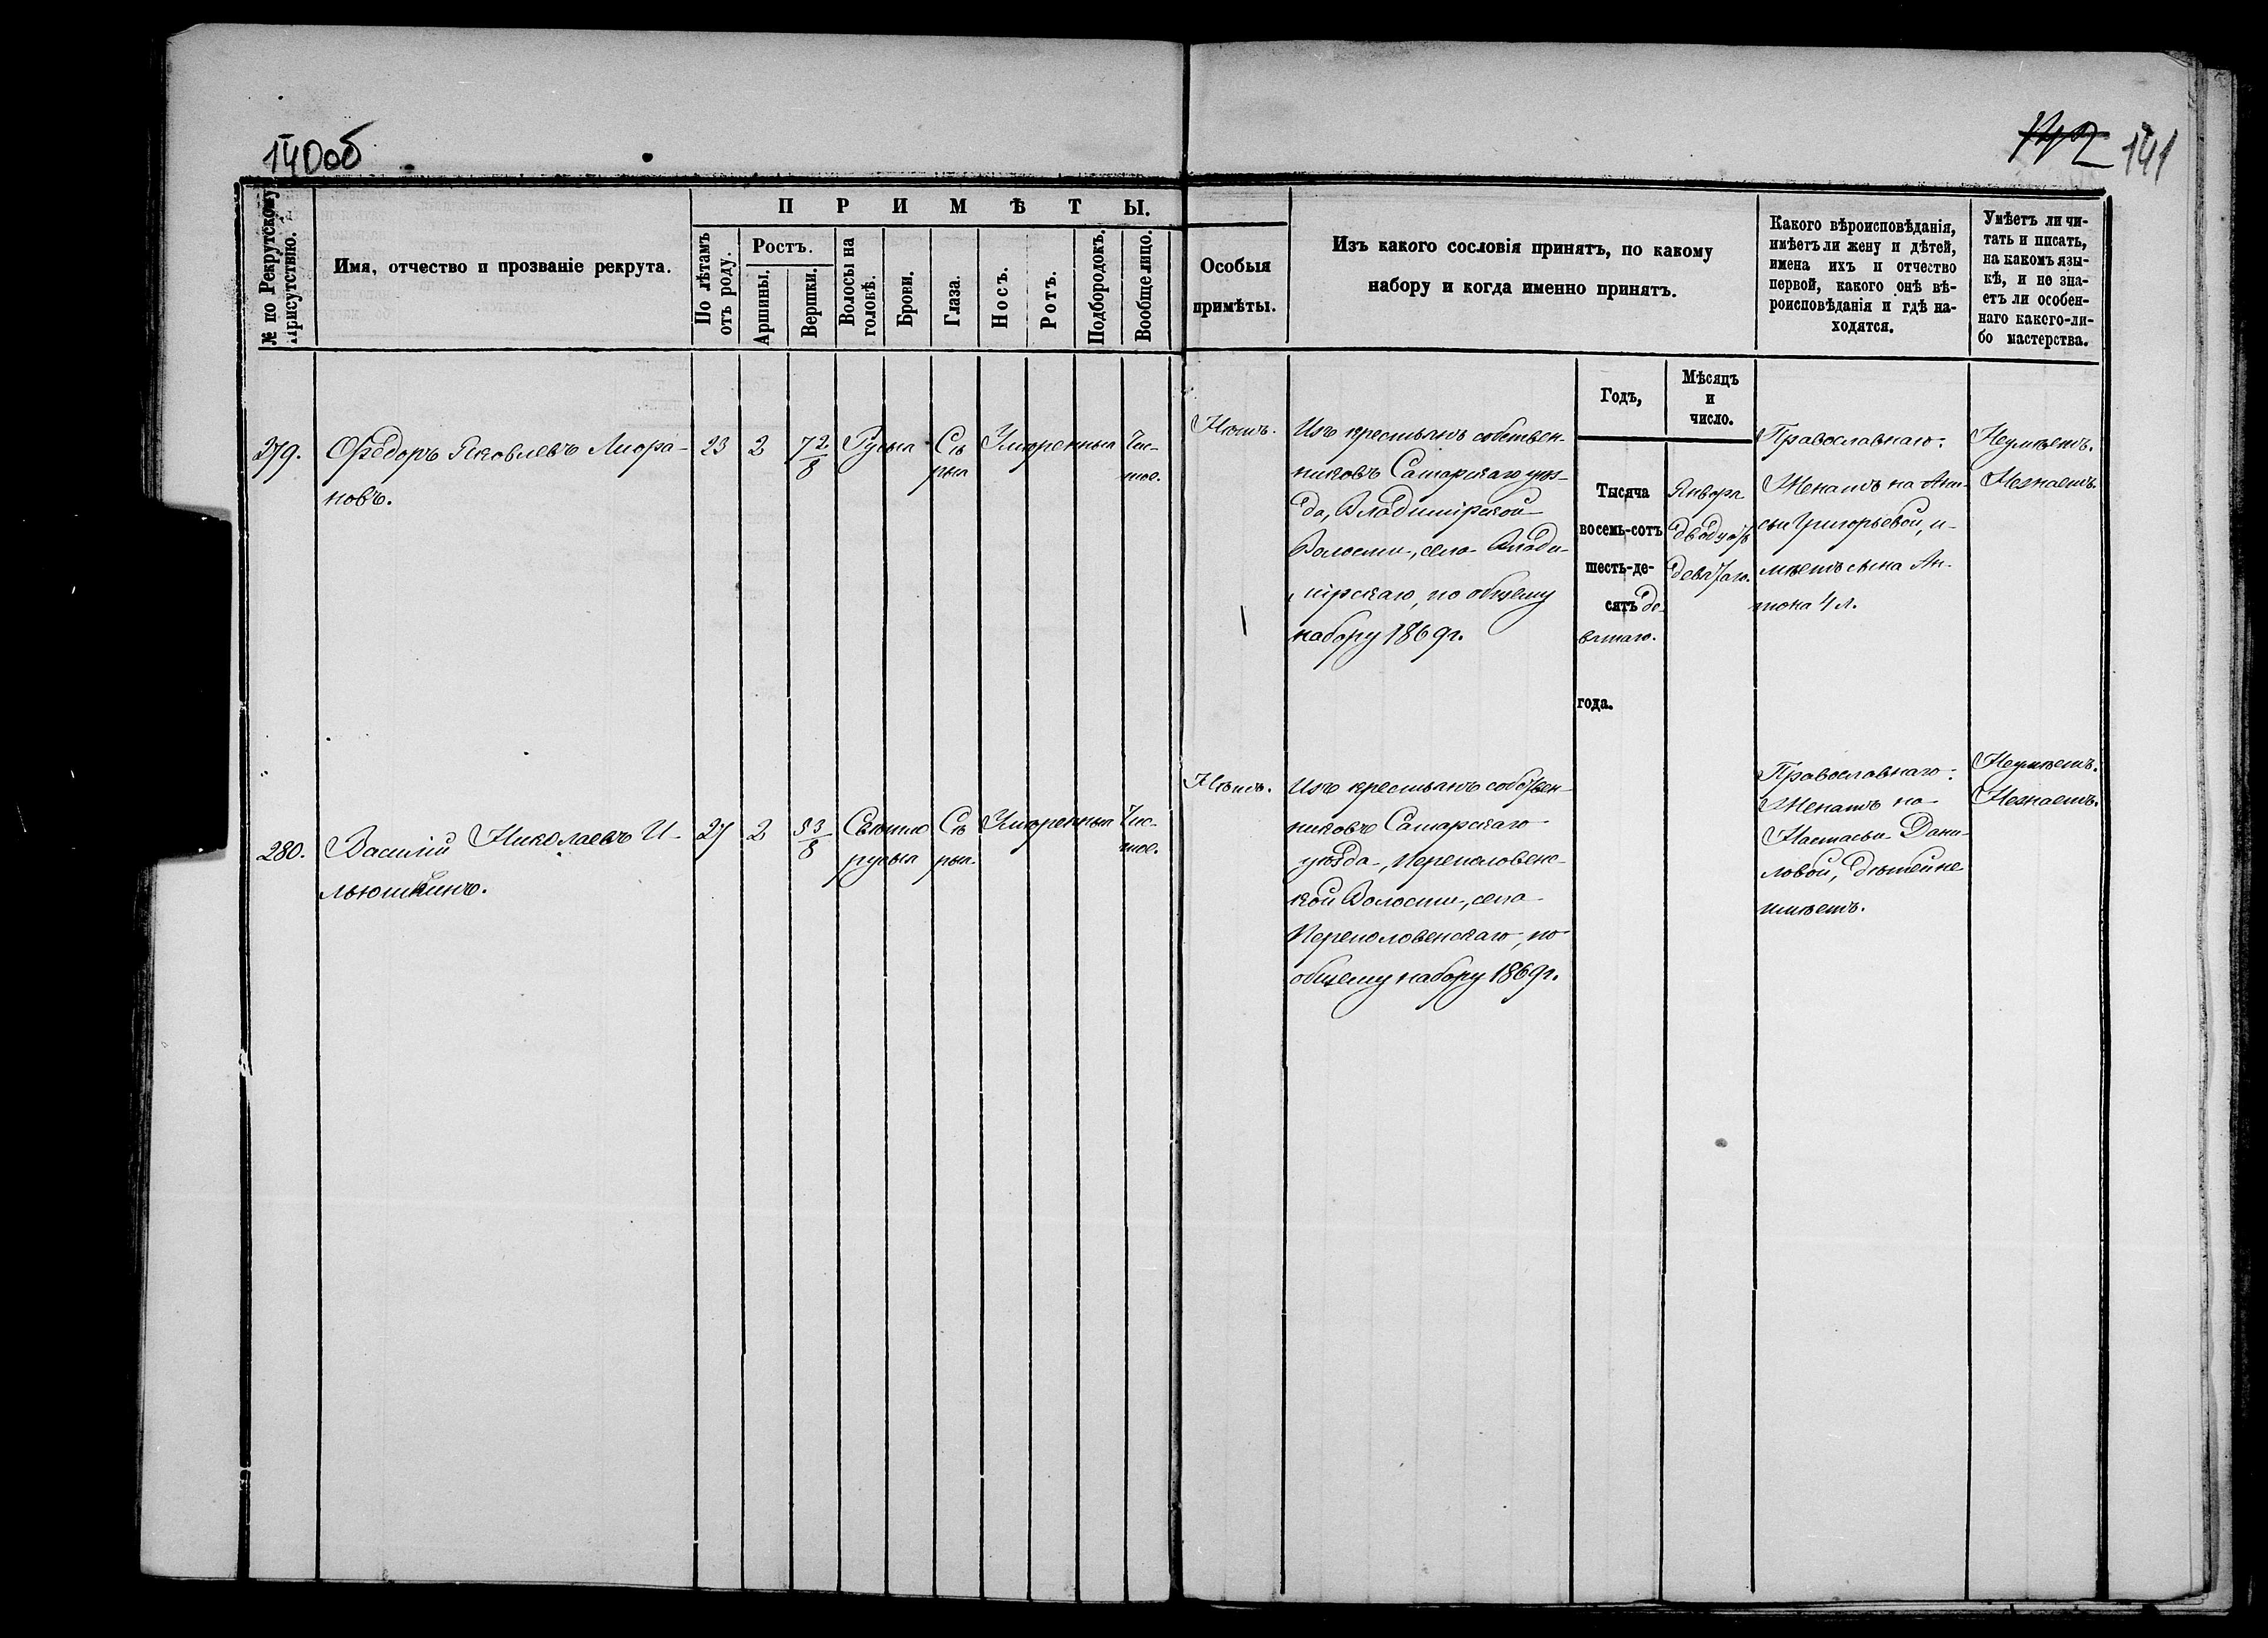 140об
142 141
№ по Рекрутскому Присутствію.
Имя, отчество и прозваніе рекрута.
ПРИМѢТЫ.
По лѣтамъ отъ роду.
Ростъ.
Аршины.
Вершки.
Волосы на головѣ.
Брови.
Глаза.
Носъ.
Ротъ.
Подбородокъ.
Вообще лицо.
Особыя
примѣты.
Изъ какого сословія принятъ, по какому
набору и когда именно принятъ.
Какого вѣроисповѣданія,
имѣетъ ли жену и дѣтей,
имена ихъ и отчество
первой, какого онѣ вѣ-
роисповѣданія и гдѣ на-
ходятся.
Умѣетъ ли чи-
тать и писать,
на какомъ язы-
кѣ, и не зна-
етъ ли особен-
наго какого-ли-
бо мастерства.
Годъ,
Мѣсяцъ
и
число.
279.
Ѳедоръ Яковлевъ
новъ.
23 2 7 2/8
Русыя
Сѣ
рыя
Умѣренныя
Чис-
тое.
Нѣтъ.
Изъ крестьянъ собствен-
никовъ Самарскаго уѣз-
да, Владимірской
Волости, села Влади-
мірскаго, по общему
набору 1869г.
Тысяча
восемь-сотъ
шесть-де-
сятъ де-
вятаго.
года.
Января
двадцать
девятаго.
Православнаго.
Женатъ на Ани-
сьи Григорьевой, и-
мѣетъ сына Ан-
тона 4 л.
Неумѣетъ.
Незнаетъ.
280.
Василій Николаевъ И-
льюшкинъ.
27 2 5 3/8
Свѣтло
русыя
Сѣ
рыя.
Умѣренныя
Чис-
тое.
Нѣтъ.
Изъ крестьянъ собствен-
никовъ Самарскаго
уѣзда, Переполовенс-
кой Волости, села
Переполовенскаго, по
общему набору 1869г.
Православнаго.
Женатъ на
Настасьи Дани-
ловой, дѣтей не
имѣетъ.
Неумѣетъ.
Незнаетъ.